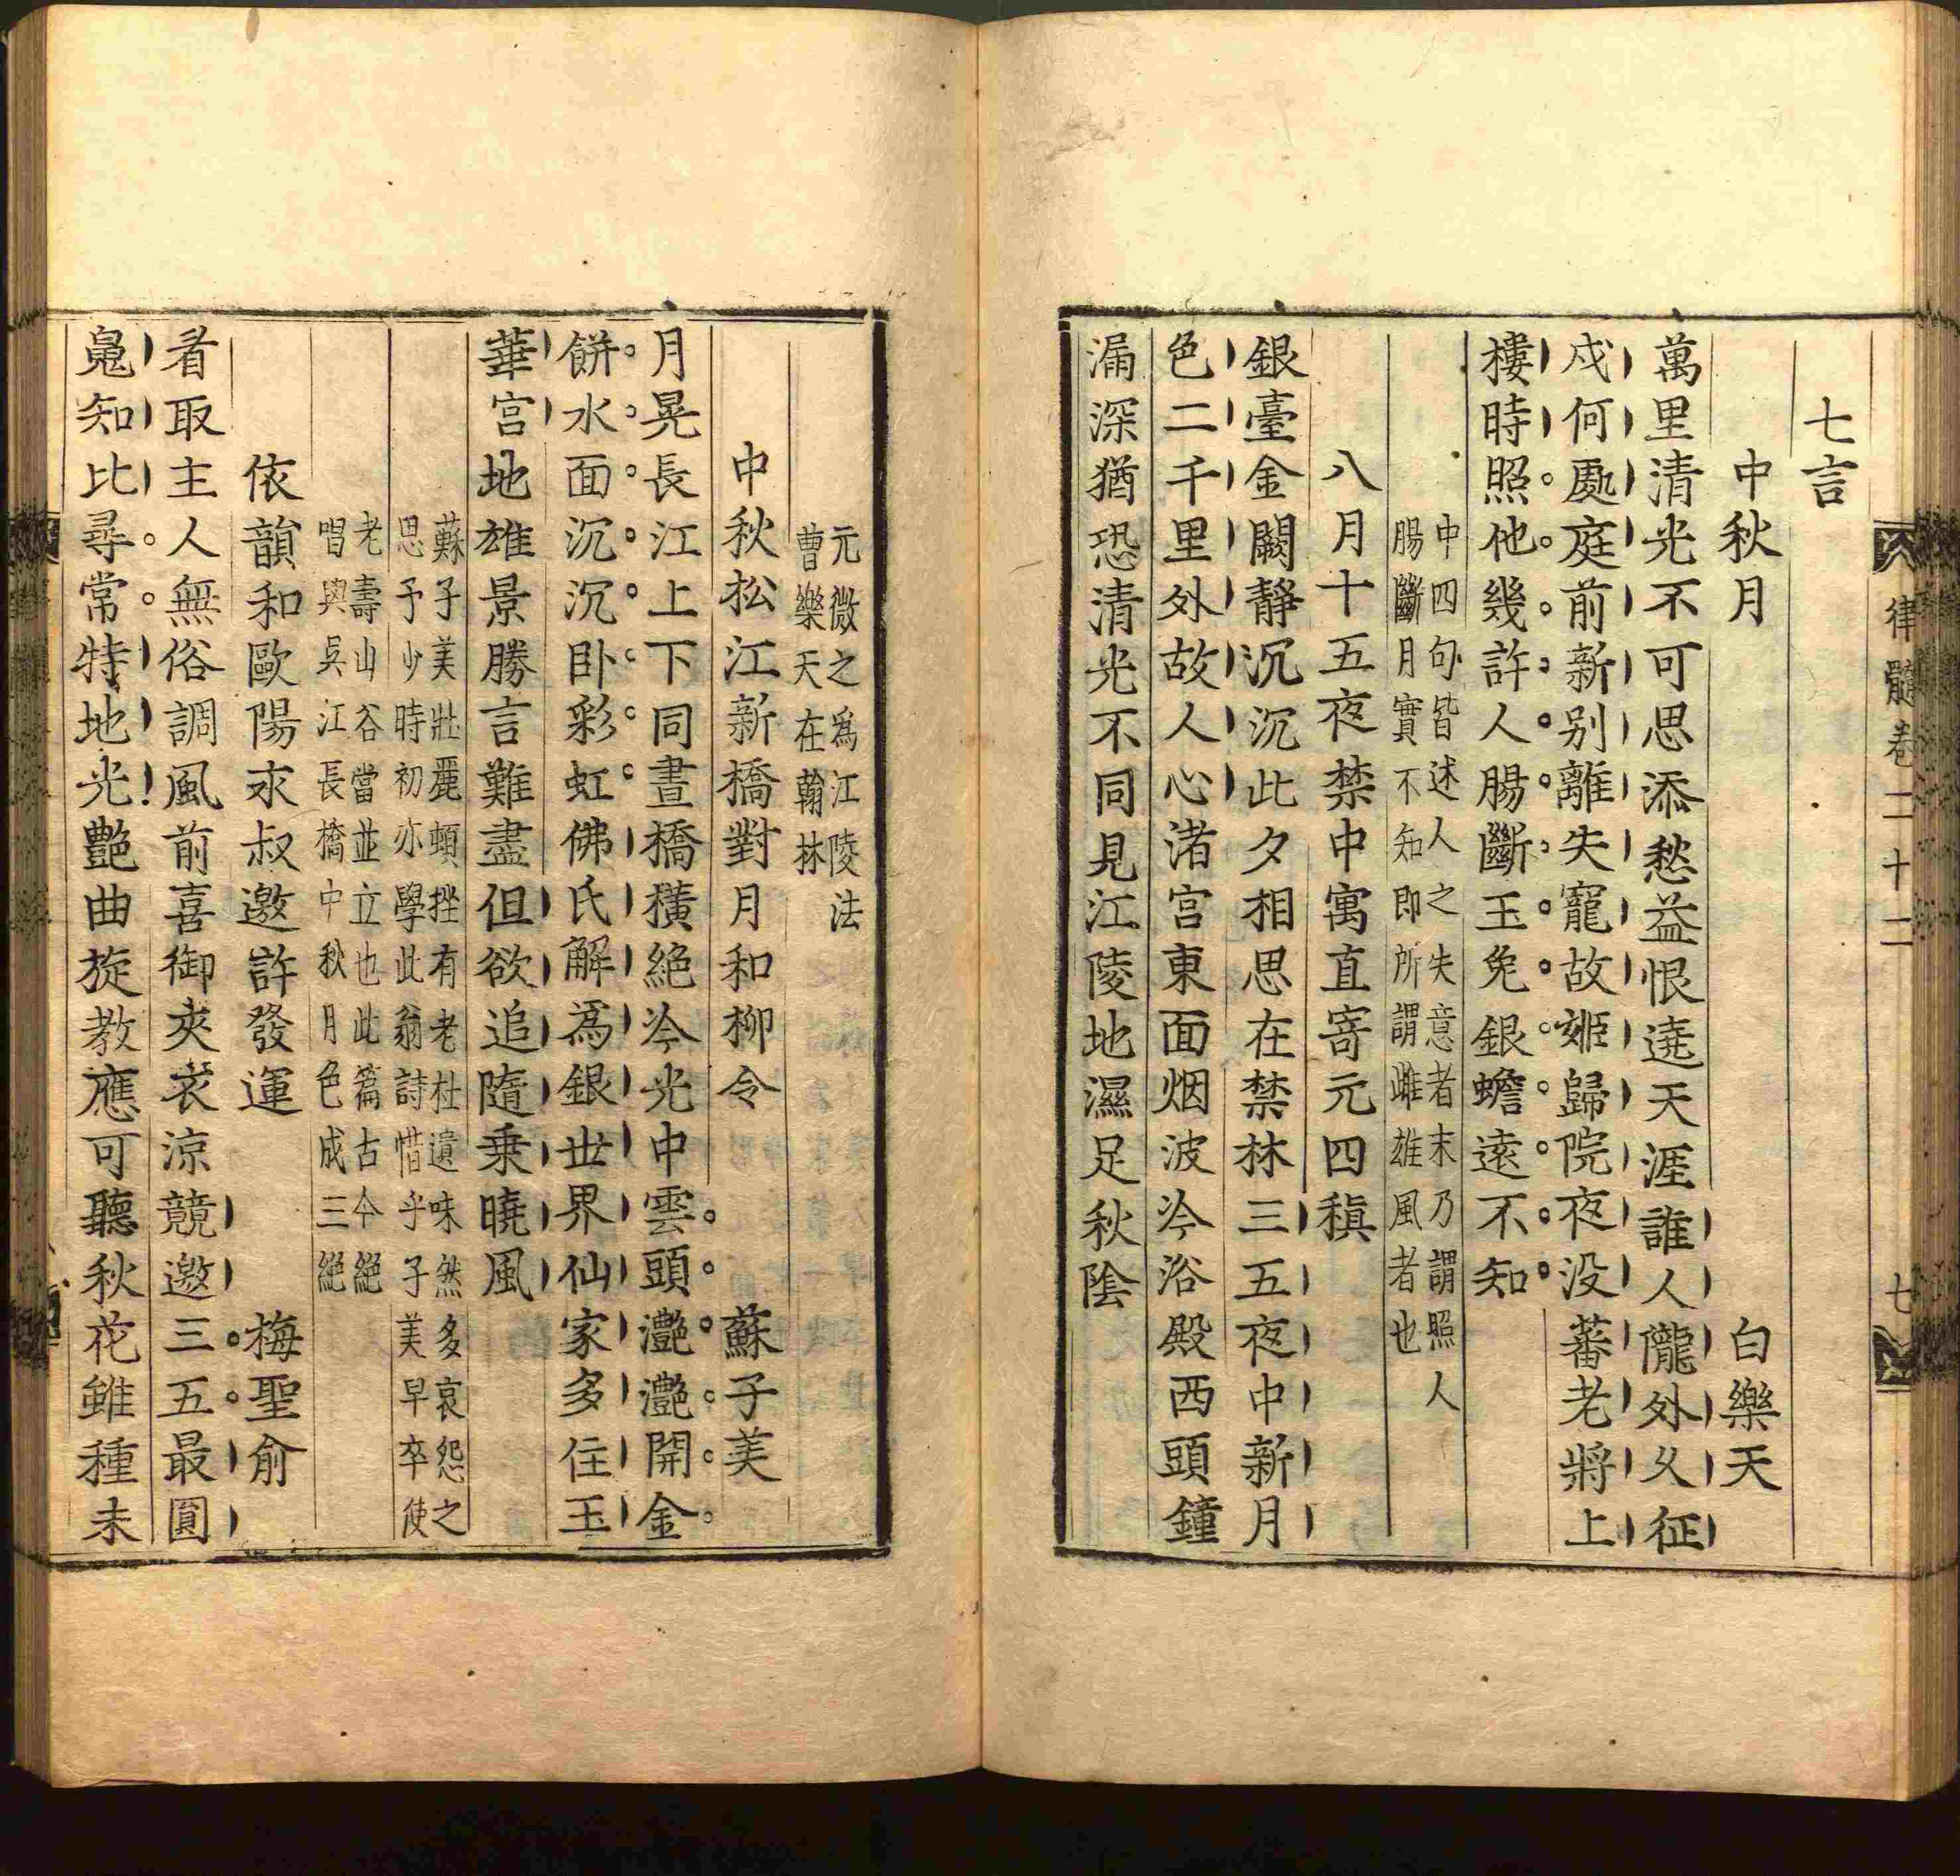 律髓卷二十二
七
七言
中秋月 白樂天
萬里清光不可思添愁益恨遶天涯誰人隴外久征
戍何處庭前新别離失寵故姬歸院夜没蕃老將上
樓時照他幾許人腸斷玉兔銀蟾遠不知
中四句皆述人之失意者末乃謂照人
腸斷月實不知即所謂雌雄風者也
八月十五夜禁中寓直寄元四稹
銀臺金闕静沉沉此夕相思在禁林三五夜中新月
色二千里外故人心渚宫東面烟波冷浴殿西頭鐘
漏深猶恐清光不同見江陵地濕足秋陰
元微之爲江陵法
曹樂天在翰林
中秋松江新橋對月和柳令 蘇子美
月晃長江上下同畫橋横絶冷光中雲頭灎灎開金
餅水面沉沉卧彩虹佛氏解爲銀世界仙家多住玉
華宫地雄景勝言難盡但欲追隨乗曉風
蘇子美壯麗頓挫有老杜遺味然多哀怨之
思予少時初亦學此翁詩惜乎子美早卒使
老壽山谷當並立也此篇古今絶
唱與吳江長橋中秋月色成三絶
依韻和歐陽永叔邀許發運 梅聖俞
看取主人無俗調風前喜御夾衣涼競邀三五最圓
䰟知比尋常特地光艷曲旋教應可聽秋花雖種未